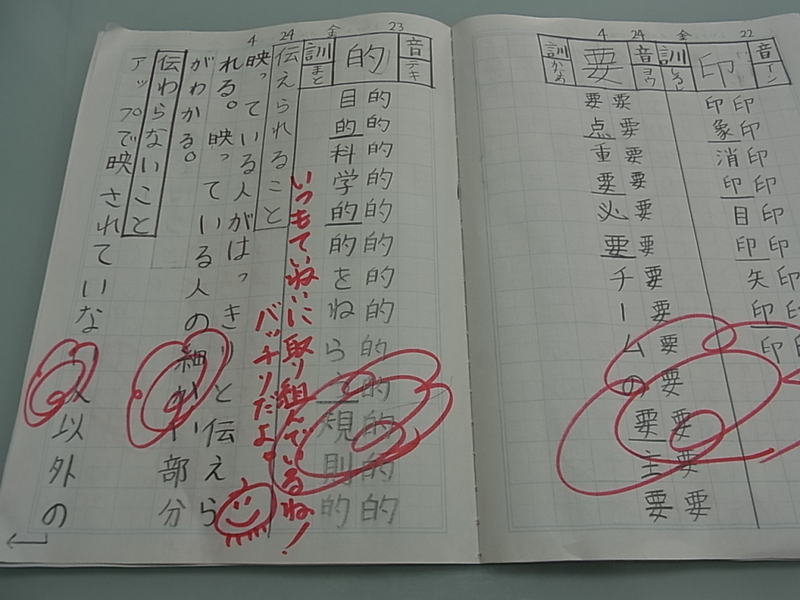 4 24 金 22
音 イン
印
訓 しるし
印印印印印印印印印
印象消印目印矢印印
音 ヨウ
要
訓 かなめ
要要要要要要要要要要要要要
要点重要必要チームの要主要
4 24 金 23
音 テキ
的
訓 まと
的的的的的的的的的的的的的
目的科学的的をねら規則的
いつもていねいに取り組んでいるね!
バッチリだよ。
伝えられること
映っている人がはっきりと伝えら
れる。映っている人の細かい部分
がわかる。
伝わらないこと
アップで映されていな人以外の